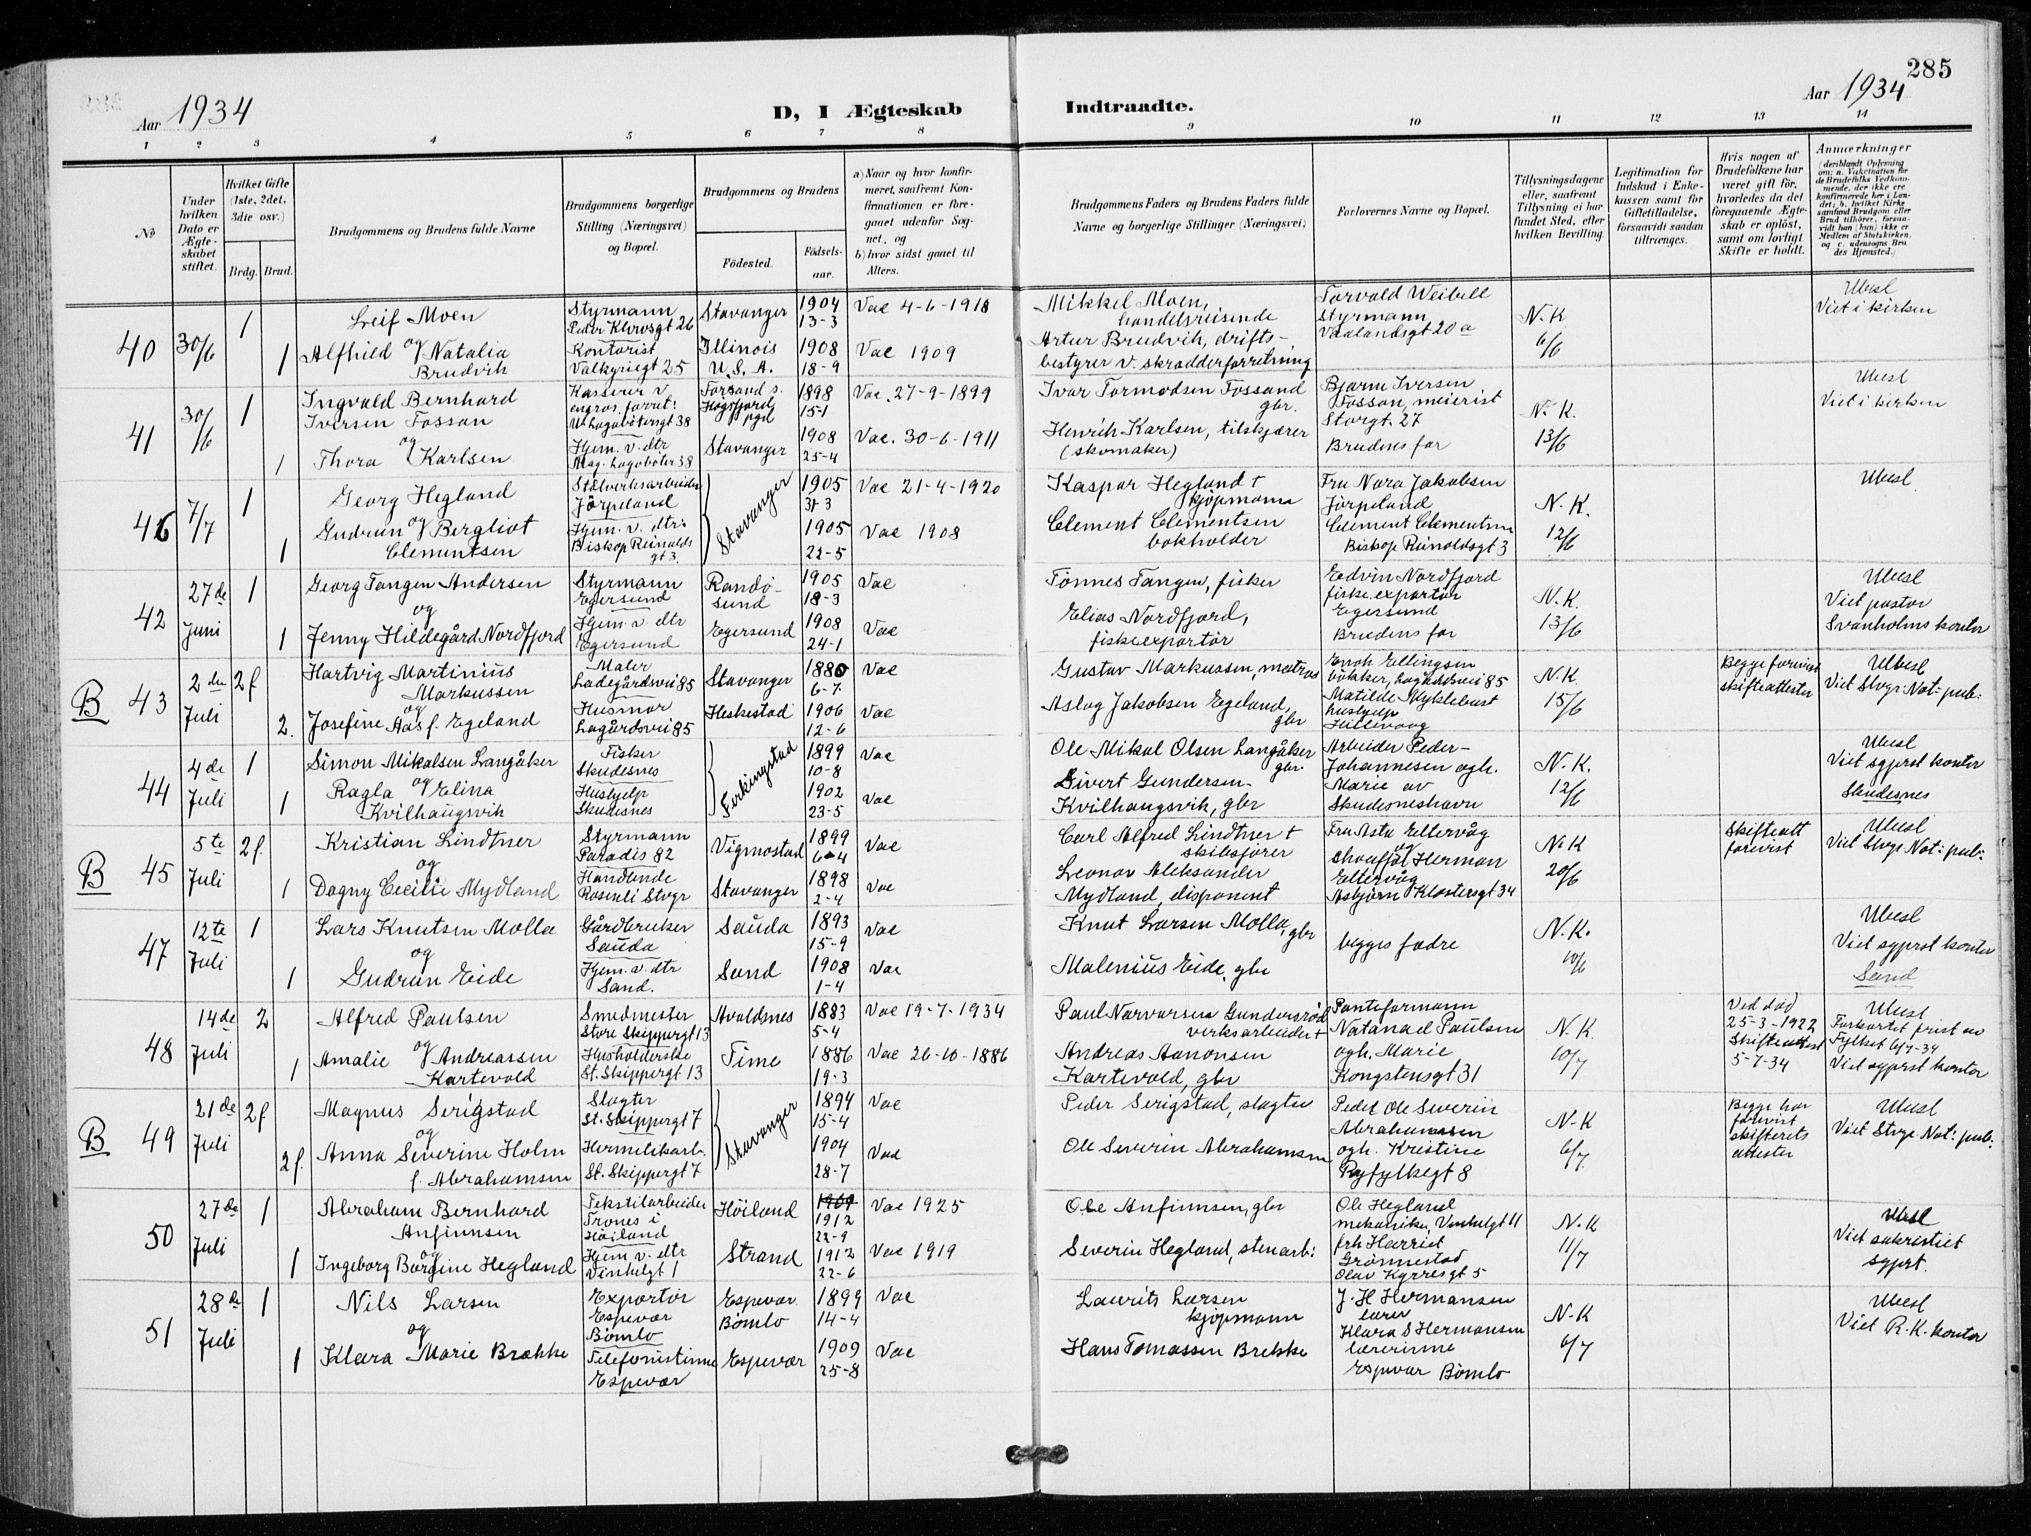 285
Aar 1934
D, I Ægteskab
Indtraadte.
Aar 1934
1 2 3 4 5 6 7 8 9 10 11 12 13 14
No
Under hvilken Dato er Ægteskabet stiftet.
Hvilket Gifte (1ste, 2det, 3die osv.)
Brdg. Brud.
Brudgommens og Brudens fulde Navne
Brudgommens borgerlige Stilling (Næringsvei) og Bopæl.
Brudgommens og Brudens
Fødested.
Fødselsaar.
a) Naar og hvor konfirmeret, saafremt Konfirmationen er foregaaet udenfor Sognet, og
b) hvor sidst gaaet til Alters.
Brudgommens Faders og Brudens Faders fulde Navne og borgerlige Stillinger (Næringsvei)
Forlovernes Navne og Bopæl.
Tillysningsdagene eller, saafremt Tillysning ei har fundet Sted, efter hvilken Bevilling.
Legitimation for Indskud i Enkekassen samt for Giftetilladelse, forsaavidt saadan tiltrænges.
Hvis nogen af Brudefolkene har været gift før, hvorledes da det foregaaende Ægteskab er opløst, samt om lovligt Skifte er holdt.
Anmerkninger
40 30/6 1 Leif Moen Styrmann Peder Klowsgt 26 Stavanger 1904 13-3 Vac 4-6-1918 Mikkel Moen, handelsreisende Torvald Weibell Styrmann Vaalandsgt 20a N.K. 6/6 Ubesl Viet i kirken
og
1 Alfhild Natalia Brudvik Kontorist Valkyriegt 25 Illinois U.S.A. 1908 18-9 Vac 1909 Artur Brudvik, driftsbestyrer v. skrædderforretning
41 30/6 1 Ingvald Bernhard Iversen Fossan Kasserer v. engros. forret: Forsand s. Høgsfjord pgd 1898 15-1 Vac. 27-9-1899 Ivar Tormodsen Fossand gbr. Bjarne Iversen Fossan, meierist Storgt. 27 N.K. 13/6 Ubesl Viet i kirken
og
1 Thora Karlsen Hjem. v. dtr Mag. Lagabøter 38 Stavanger 1908 25-4 Vac. 30-6-1911 Henrik Karlsen, tilskjærer (skomaker) Brudens far
46 7/7 1 Georg Hegland Stålverksarbeider Jørpeland Stavanger 1905 31-3 Vac 21-4-1920 Kaspar Hegland + kjøpmann Fru Nora Jakobsen Jørpeland N.K. 12/6 Ubesl
og
1 Gudrun Bergliot Clementsen Hjem. v. dtr: Biskop Reinalds gt 3. 1905 22-5 Vac 1908 Clement Clementsen bokholder Clement Clementsen Biskop Reinoldsgt 3
42 27de Juni 1 Georg Tangen Andersen Styrmann Egersund Randøsund 1905 18-3 Vac Tønnes Tangen, fisker Edvin Nordfjord fiskeexportør Egersund N.K. 13/6 Ubesl Viet pastor Svanholms kontor
og
1 Jenny Hildegård Nordfjord Hjem. v. dtr Egersund Egersund 1908 24-1 Vac Elias Nordfjord, fiskeexportør Brudens far
B 43 2den Juli 2f Hartvig Martinius Markussen Maler Ladegårdsvei 85 Stavanger 1880 6-7 Vac Gustav Markussen, matros Enok Ellingsen bøkker, Lagårdsvei 85 N.K. 15/6 Begge forevist skifteattester Ubesl Viet Stvgr Not: pub:
og
2. Josefine Aas f. Egeland Husmor Lagårdsvei 85 Heskestad 1906 12-6 Vac Aslag Jakobsen Egeland, gbr Matilde Myklebust hushjelp Hillevaag
44 4de Juli 1 Simon Mikalsen Langåker Fisker Skudesnes Ferkingstad 1899 10-8 Vac Ole Mikal Olsen Langåker gbr. Arbeider Peder Johannesen ogh. Marie av Skudesneshavn N.K. 12/6 Ubesl Viet sgprst kontor Skudesnes
og
1 Ragla Velina Kvilhaugsvik Hushjelp Skudesnes 1902 23-5 Vac Sivert Gundersen Kvilhaugsvik, gbr
B 45 5te Juli 2f. Kristian Lindtner Styrmann Paradis 82 Vigmostad 1899 6-4 Vac Carl Alfred Lindtner + skibsfører Fru Asta Eltervåg N.K 20/6 Skifteatt forevist Ubesl Viet Stvgr Not: pub:
og
1 Dagny Cecilie Mydland Handlende Rosenli Stvgr Stavanger 1898 2-4 Vac Leonar Aleksander Mydland, disponent og Chauffør Herman Eltervåg Asbjørn Klostersgt 34
47 12te Juli 1 Lars Knutsen Molla Gårdbruker Sauda Sauda 1893 15-9 Vac Knut Larsen Molla, gbr begges fædre N.K. 10/6 Ubesl Viet sgprst kontor Sand
og
1 Gudrun Eide Hjem. v. dtr Sand. Sand 1908 1-4 Vac Malenius Eide, gbr
48 14de Juli 2 Alfred Paulsen Smedmester Store Skippergt 13 Avaldsnes 1883 5-4 Vac 19-7-1934 Paul Narvarsen Gundersrød verksarbeider + Panteformann Natanael Paulsen ogh. Marie Kongstensgt 31 N.K. 10/7 Ved død 25-3-1922 Skifteattest 5-7-34 Ubesl Forkortet frist av Fylket 6/7-34 Viet sgprst kontor
og
1 Amalie Andreassen Kartevold Husholderske St. Skippergt 13 Time 1886 19-3 Vac 26-10-1886 Andreas Aanonsen Kartevold, gbr
B 49 21de Juli 2f Magnus Serigstad Slagter St. Skippergt 7 Stavanger 1894 15-4 Vac Peder Serigstad, slagter Pedel Ole Severin Abrahamsen ogh. Kristine Ryfylkegt 8 N-K 6/7 Begge har forevist skifterets attester Ubesl Viet Stvgr Not: pub:
og
2f. Anna Severine Holm f. Abrahamsen Hermetikarb. St. Skippergt 7 1904 28-7 Vac Ole Severin Abrahamsen
50 27de Juli 1 Abraham Bernhard Anfinnsen Tekstilarbeider Trones i Høiland Høiland 1909 1912 22-9 Vac 1925 Ole Anfinnsen, gbr Ole Hegland mekaniker, Vinkelgt 11 N-K 11/7 Ubesl Viet sakristiet sgprst.
og
1 Ingeborg Bergine Hegland Hjem v. dtr Vinkelgt 1 Strand 1912 22-6 Vac 1919 Severin Hegland, stenarb: frk Harriet Grønnestad Olav Kyrresgt 5
51 28de Juli 1 Nils Larsen Exportør Espevær Bømlo Espevær Bømlo 1899 14-4 Vac Laurits Larsen kjøpmann J. H Hermansen lærer N-K 6/7 Ubesl Viet R.K. kontor
og
1 Klara Marie Brække Telefonistinne Espevær Espevær 1909 25-8 Vac Hans Tomassen Brekke Klara S Hermansen lærerinne Espevær Bømlo